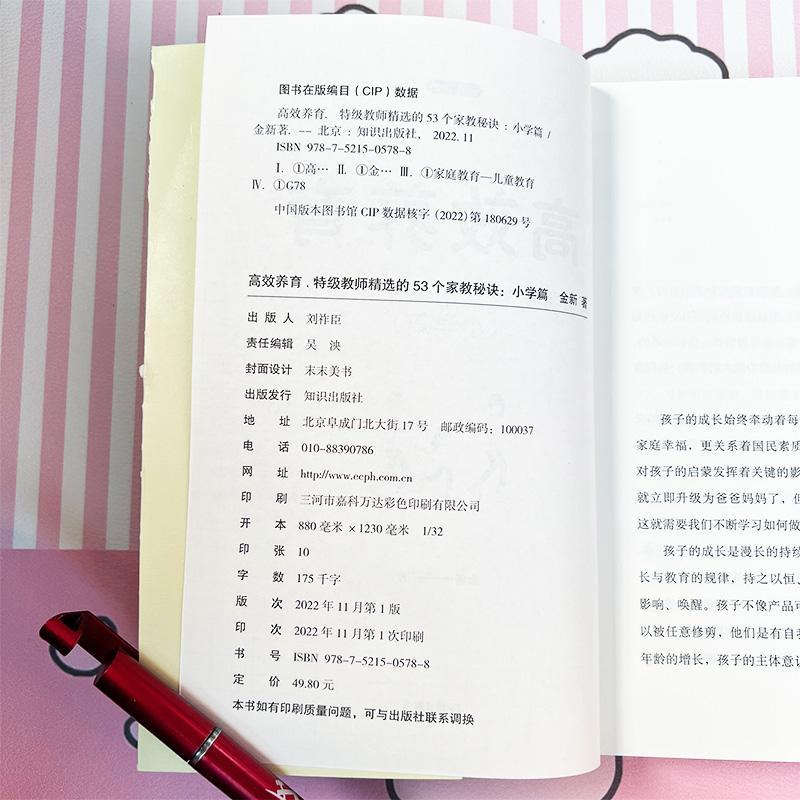 图书在版编目（CIP）数据
高效养育． 特级教师精选的 53 个家教秘诀：小学篇 /
金新著. -- 北京：知识出版社， 2022. 11
ISBN 978-7-5215-0578-8
Ⅰ. ①高… Ⅱ. ①金… Ⅲ. ①家庭教育—儿童教育
Ⅳ. ①G78
中国版本图书馆 CIP 数据核字（2022）第 180629 号
高效养育．特级教师精选的 53 个家教秘诀：小学篇 金新 著
出 版 人 刘祚臣
责任编辑 吴 泱
封面设计 末末美书
出版发行 知识出版社
地 址 北京阜成门北大街 17 号 邮政编码：100037
电 话 010-88390786
网 址 http://www.ecph.com.cn
印 刷 三河市嘉科万达彩色印刷有限公司
开 本 880 毫米 ×1230 毫米 1/32
印 张 10
字 数 175 千字
版 次 2022 年 11 月第 1 版
印 次 2022 年 11 月第 1 次印刷
书 号 ISBN 978-7-5215-0578-8
定 价 49.80 元
本书如有印刷质量问题，可与出版社联系调换
孩子的成长始终牵动着每
家庭幸福，更关系着国民素质
对孩子的启蒙发挥着关键的影
就立即升级为爸爸妈妈了，但
这就需要我们不断学习如何做
孩子的成长是漫长的持续
长与教育的规律，持之以恒、
影响、唤醒。孩子不像产品可
以被任意修剪，他们是有自我
年龄的增长，孩子的主体意识